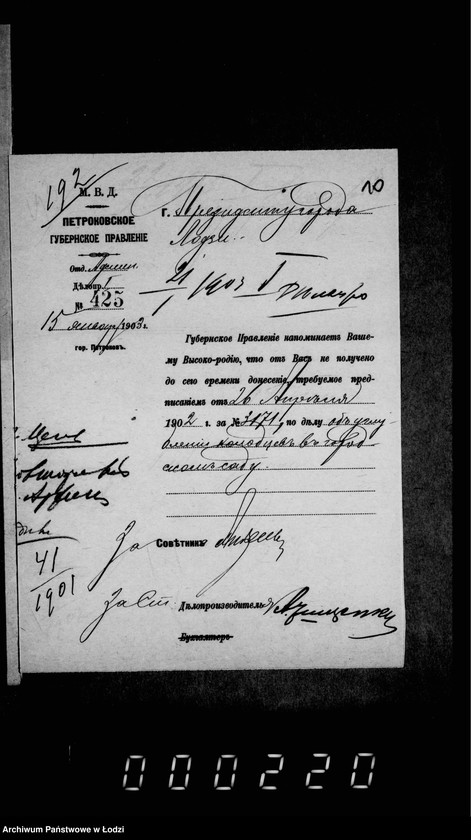 192
10
М. В. Д.
ПЕТРОКОВСКОЕ
ГУБЕРНСКОЕ ПРАВЛЕНІЕ
Отд. Админ.
Дѣлопр. I
№ 425
15 января 1903 г.
гор. Петроковъ.
Г. Президенту города
Лодзи.
21/1 1903 I
Губернское Правленіе напоминаетъ Ваше-
му Высоко-родію, что отъ Васъ не получено
до сего времени донесеніе, требуемое пред-
писаніемъ отъ 26 Апрѣля
1902 г. за № 3171, по дѣлу объ углу-
бленіи колодцевъ въ город-
скомъ саду.
41
1901
За Совѣтникъ
За Ст. Дѣлопроизводитель
Бухгалтеръ
000220
Archiwum Państwowe w Łodzi